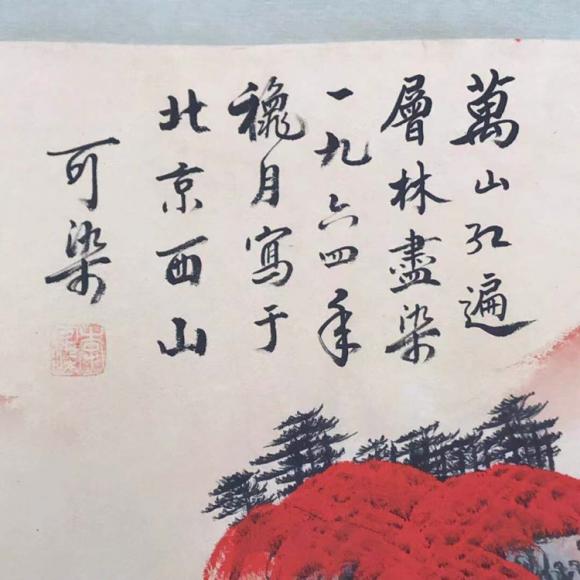 萬山紅遍
層林盡染
一九六四年
穐月寫于
北京西山
可染